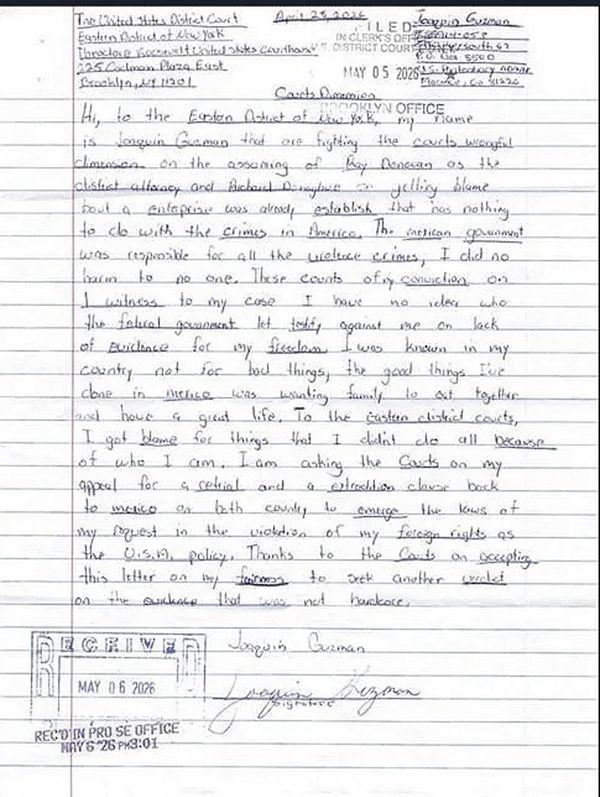 The United States District Court
Eastern District of New York
Theodore Roosevelt United States Courthouse
225 Cadman Plaza East
Brooklyn, NY 11201
April 23, 2026
FILED
IN CLERK'S OFFICE
U.S. DISTRICT COURT
MAY 05 2026
BROOKLYN OFFICE
Joaquin Guzman
P.O. Box 8500
U.S. Penitentiary
Florence, Co 81226
Courts Dimension
Hi, to the Eastern District of New York, my name
is Joaquin Guzman that are fighting the courts wrongful
dimension on the assoming of Ray Donovan as the
district attorney and Richard Donoghue on yelling blame
bout a enterprise was already establish that has nothing
to do with the crimes in America. The mexican government
was responsible for all the violence crimes, I did no
harm to no one. These counts of my conviction on
I witness to my case I have no idea who
the federal government let testify against me on lack
of evidence for my freedom. I was known in my
country not for bad things, the good things I've
done in mexico was wanting family to eat together
and have a great life. To the Eastern district courts,
I got blame for things that I didn't do all because
of who I am. I am asking the Courts on my
appeal for a retrial and a extradition clause back
to mexico on both country to emerge the laws of
my request in the violation of my foreign rights as
the U.S.A. policy. Thanks to the Courts on accepting
this letter on my fairness to seek another verdict
on the evidence that was not hardcore.
Joaquin Guzman
Joaquin Guzman
Signature
RECEIVED
MAY 06 2026
REC'D IN PRO SE OFFICE
MAY 6 '26 PM3:01